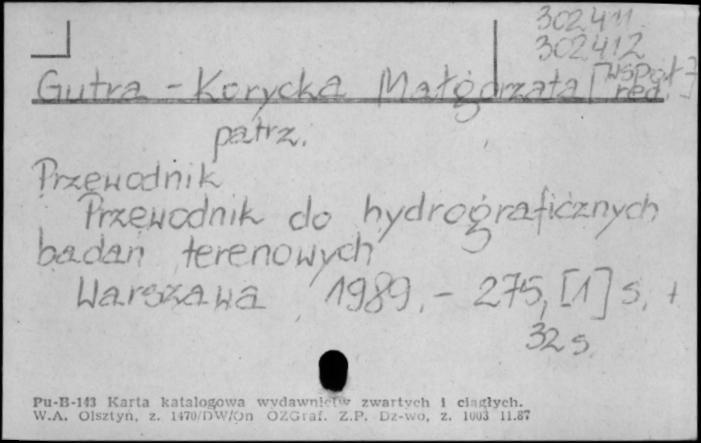 302411
302412
Gutra - Korycka Małgorzata [współ
red.]
patrz.
Przewodnik
Przewodnik do hydrograficznych
badań terenowych
Warszawa 1989. - 275, [1] s. +
32 s.
Pu-B-143 Karta katalogowa wydawnictw zwartych i ciągłych.
W.A. Olsztyn, z. 1470/DW/On OZGraf. Z.P. Dz-wo, z. 1003 11.87